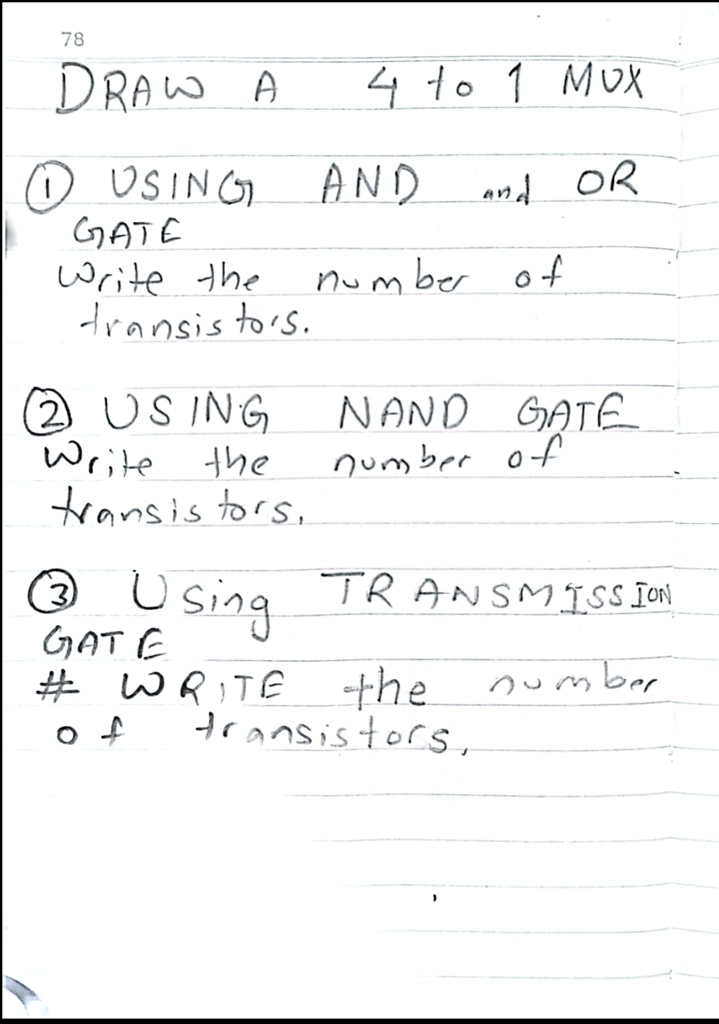 78
DRAW A 4 to 1 MUX
① USING AND and OR
GATE
Write the number of
transistors.
② USING NAND GATE
Write the number of
transistors.
③ Using TRANSMISSION
GATE
# WRITE the number
of transistors.